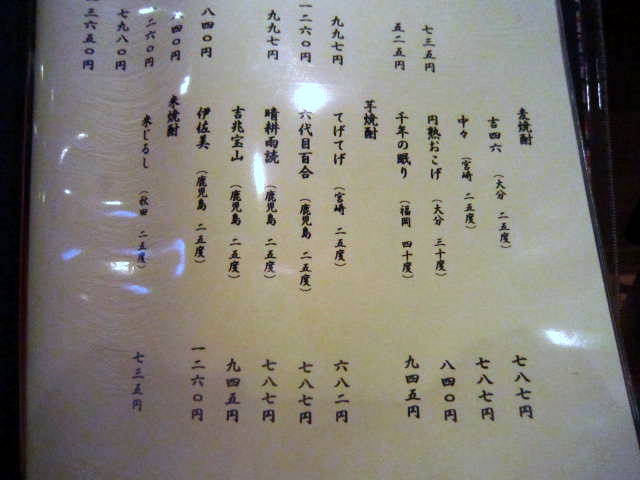 七三五円
五二五円
九九七円
一二六〇円
九九七円
八四〇円
四〇円
二六〇円
七九八〇円
一三六五〇円
麦焼酎
吉四六 (大分 二五度) 七八七円
中々 (宮崎 二五度) 七八七円
円熟おこげ (大分 三十度) 八四〇円
千年の眠り (福岡 四十度) 九四五円
芋焼酎
てげてげ (宮崎 二五度) 六八二円
六代目百合 (鹿児島 二五度) 七八七円
晴耕雨読 (鹿児島 二五度) 七八七円
吉兆宝山 (鹿児島 二五度) 九四五円
伊佐美 (鹿児島 二五度) 一二六〇円
米焼酎
米じるし (秋田 二五度) 七三五円